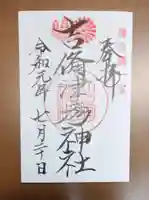 奉拝
吉備津彦神社
令和元年七月二十日